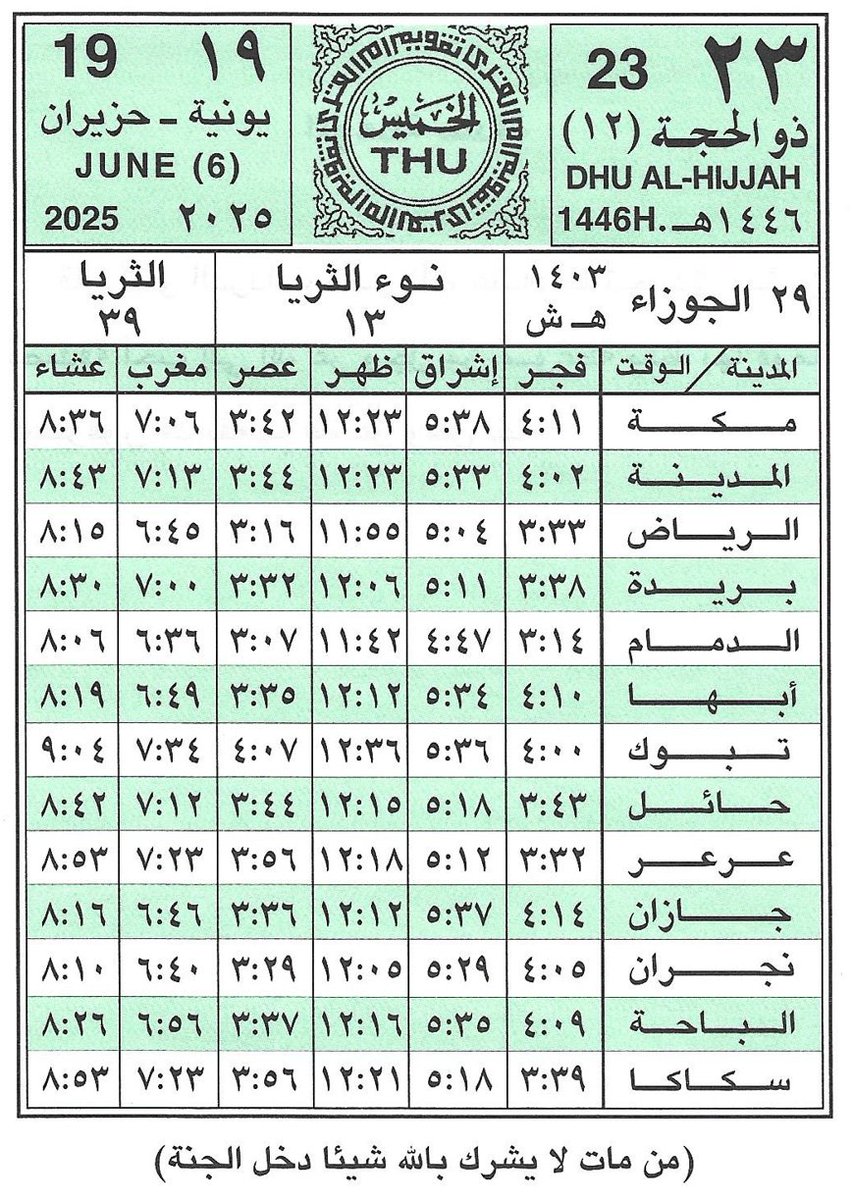 ٢٣ 23
ذو الحجة (١٢)
DHU AL-HIJJAH
1446H. ١٤٤٦هـ
تقويم أم القرى
الخميس
THU
19 ١٩
يونية - حزيران
JUNE (6)
2025 ٢٠٢٥
٢٩ الجوزاء ١٤٠٣ هـ ش
نوء الثريا ١٣
الثريا ٣٩
المدينة / الوقت فجر إشراق ظهر عصر مغرب عشاء
مكة ٤:١١ ٥:٣٨ ١٢:٢٣ ٣:٤٢ ٧:٠٦ ٨:٣٦
المدينة ٤:٠٢ ٥:٣٣ ١٢:٢٣ ٣:٤٤ ٧:١٣ ٨:٤٣
الرياض ٣:٣٣ ٥:٠٤ ١١:٥٥ ٣:١٦ ٦:٤٥ ٨:١٥
بريدة ٣:٣٨ ٥:١١ ١٢:٠٦ ٣:٣٢ ٧:٠٠ ٨:٣٠
الدمام ٣:١٤ ٤:٤٧ ١١:٤٢ ٣:٠٧ ٦:٣٦ ٨:٠٦
أبها ٤:١٠ ٥:٣٤ ١٢:١٢ ٣:٣٥ ٦:٤٩ ٨:١٩
تبوك ٤:٠٠ ٥:٣٦ ١٢:٣٦ ٤:٠٧ ٧:٣٤ ٩:٠٤
حائل ٣:٤٣ ٥:١٨ ١٢:١٥ ٣:٤٤ ٧:١٢ ٨:٤٢
عرعر ٣:٣٢ ٥:١٢ ١٢:١٨ ٣:٥٦ ٧:٢٣ ٨:٥٣
جازان ٤:١٤ ٥:٣٧ ١٢:١٢ ٣:٣٦ ٦:٤٦ ٨:١٦
نجران ٤:٠٥ ٥:٢٩ ١٢:٠٥ ٣:٢٩ ٦:٤٠ ٨:١٠
الباحة ٤:٠٩ ٥:٣٥ ١٢:١٦ ٣:٣٧ ٦:٥٦ ٨:٢٦
سكاكا ٣:٣٩ ٥:١٨ ١٢:٢١ ٣:٥٦ ٧:٢٣ ٨:٥٣
(من مات لا يشرك بالله شيئا دخل الجنة)